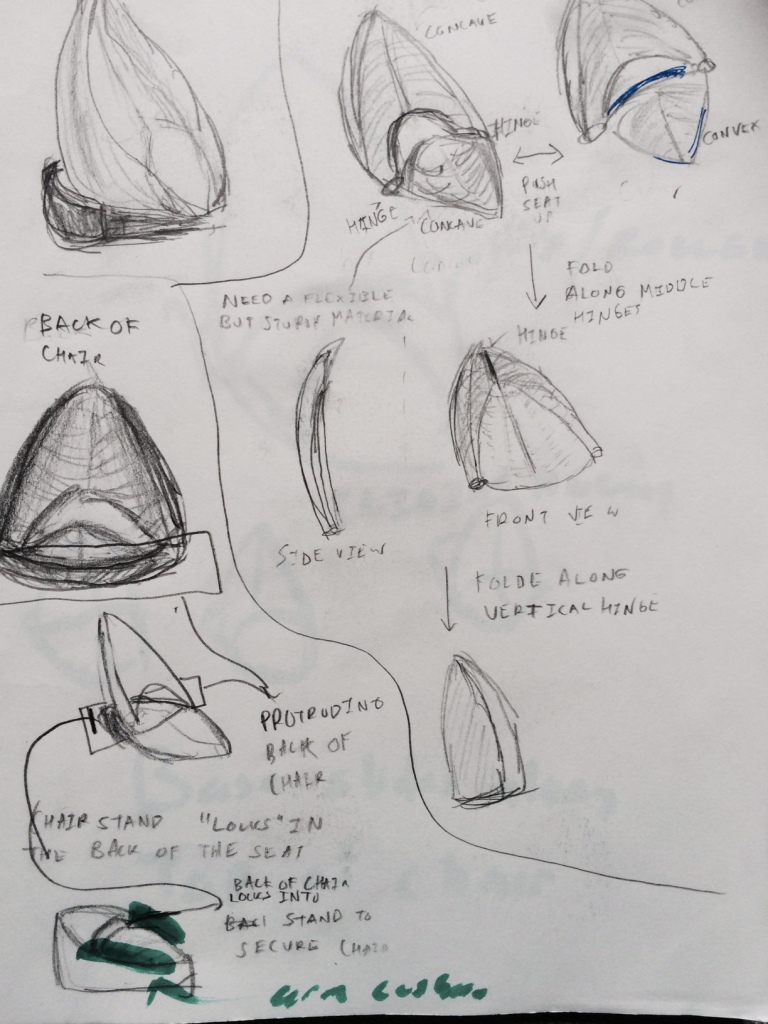 CONCAVE
HINGE
CONVEX
PUSH
SEAT
UP
HINGE
CONCAVE
NEED A FLEXIBLE
BUT STURDY MATERIAL
FOLD
ALONG MIDDLE
HINGES
HINGE
BACK OF
CHAIR
SIDE VIEW
FRONT VIEW
FOLDE ALONG
VERTICAL HINGE
PROTRUDING
BACK OF
CHAIR
CHAIR STAND "LOCKS" IN
THE BACK OF THE SEAT
BACK OF CHAIR
LOCKS INTO
STAND TO
SECURE CHAIR
arm